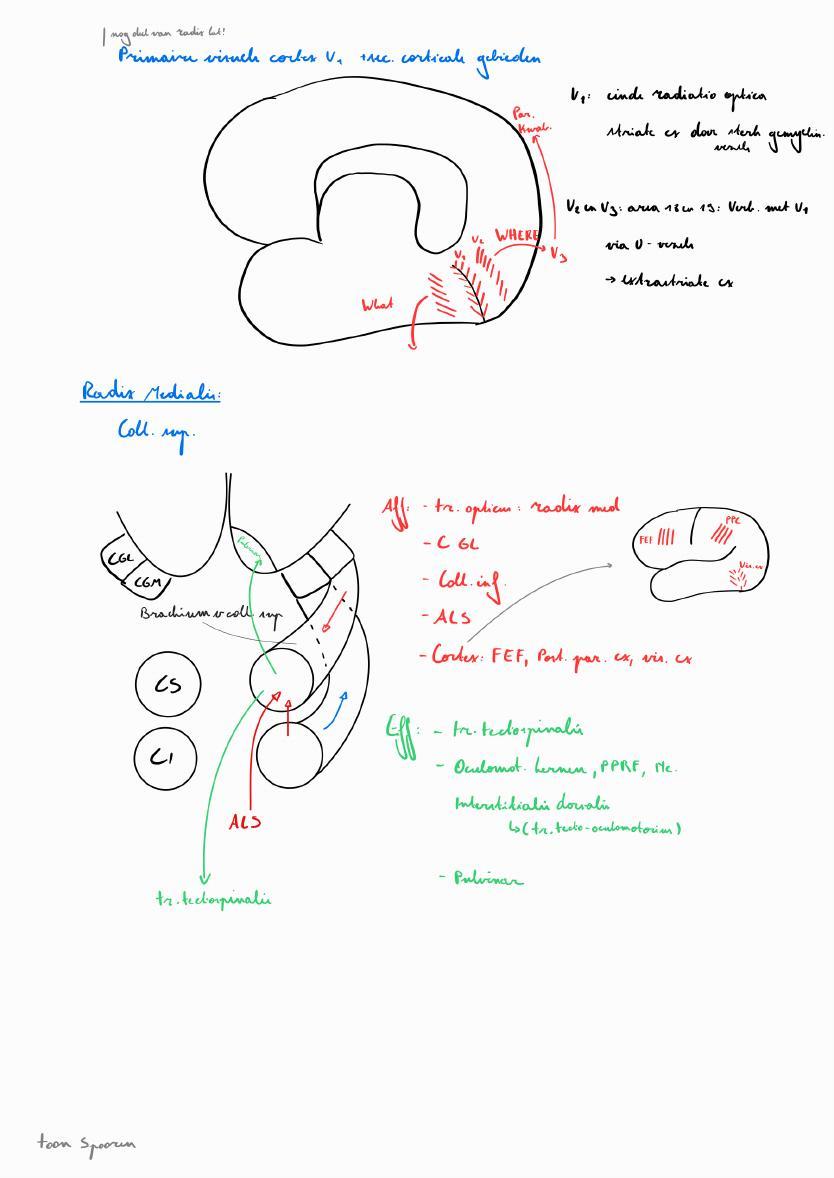 nog deel van radix lat!
Primaire visuele cortex V1 + sec. corticale gebieden
V1: einde radiatio optica
striate cx door sterk gemyelin.
vezels
Par.
Kwab.
V2 en V3: area 18 en 19: Verb. met V1
via U-vezels
→ extrastriate cx
WHERE
V3
V2
V1
What
Radix Medialis:
Coll. sup.
Aff: - tr. opticus: radix med
- CGL
- Coll. inf.
- ALS
- Cortex: FEF, Post. par. cx, vis. cx
FEF
PPC
Vis. cx
Pulvinar
CGL
CGM
Brachium v coll. sup
CS
CI
ALS
tr. tectospinalis
Eff: - tr. tectospinalis
- Oculomot. kernen, PPRF, Nc.
Interstitialis dorsalis
↳ (tr. tecto-oculomotorius)
- Pulvinar
toon Spooren